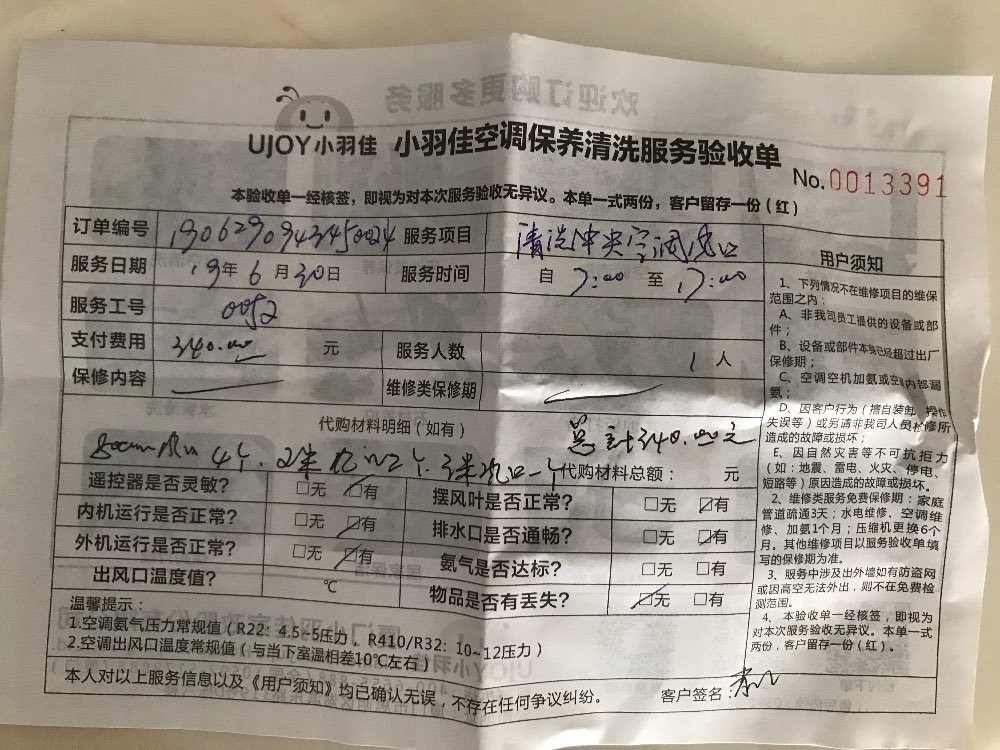 UJOY小羽佳 小羽佳空调保养清洗服务验收单
No.0013391
本验收单一经核签，即视为对本次服务验收无异议。本单一式两份，客户留存一份（红）
订单编号 1906290943450024 服务项目 清洗中央空调风口
服务日期 19年6月30日 服务时间 自 7:00 至 17:00
服务工号 0052
支付费用 340.00 元 服务人数 1人
保修内容 维修类保修期
代购材料明细（如有） 总计340.00元
800mm风口4个.2米风口2个.3米风口一个 代购材料总额： 元
遥控器是否灵敏？ □无 ☑有 摆风叶是否正常？ □无 ☑有
内机运行是否正常？ □无 ☑有 排水口是否通畅？ □无 ☑有
外机运行是否正常？ □无 ☑有 氨气是否达标？ □无 □有
出风口温度值？ ℃ 物品是否有丢失？ ☑无 □有
温馨提示：
1.空调氨气压力常规值（R22：4.5~5压力，R410/R32：10~12压力）
2.空调出风口温度常规值（与当下室温相差10℃左右）
本人对以上服务信息以及《用户须知》均已确认无误，不存在任何争议纠纷。 客户签名：
用户须知
1、下列情况不在维修项目的维保
范围之内：
A、非我司员工提供的设备或部
件；
B、设备或部件本身已经超过出厂
保修期；
C、空调空机加氨或空调内部漏
氨；
D、因客户行为（擅自装卸、操作
失误等）或另请非我司人员检修所
造成的故障或损坏；
E、因自然灾害等不可抗拒力
（如：地震、雷电、火灾、停电、
短路等）原因造成的故障或损坏。
2、维修类服务免费保修期：家庭
管道疏通3天；水电维修、空调维
修、加氨1个月；压缩机更换6个
月。其他维修项目以服务验收单填
写的保修期为准。
3、服务中涉及出外墙如有防盗网
或因高空无法外出，则不在免费检
测范围。
4、本验收单一经核签，即视为
对本次服务验收无异议。本单一式
两份，客户留存一份（红）。